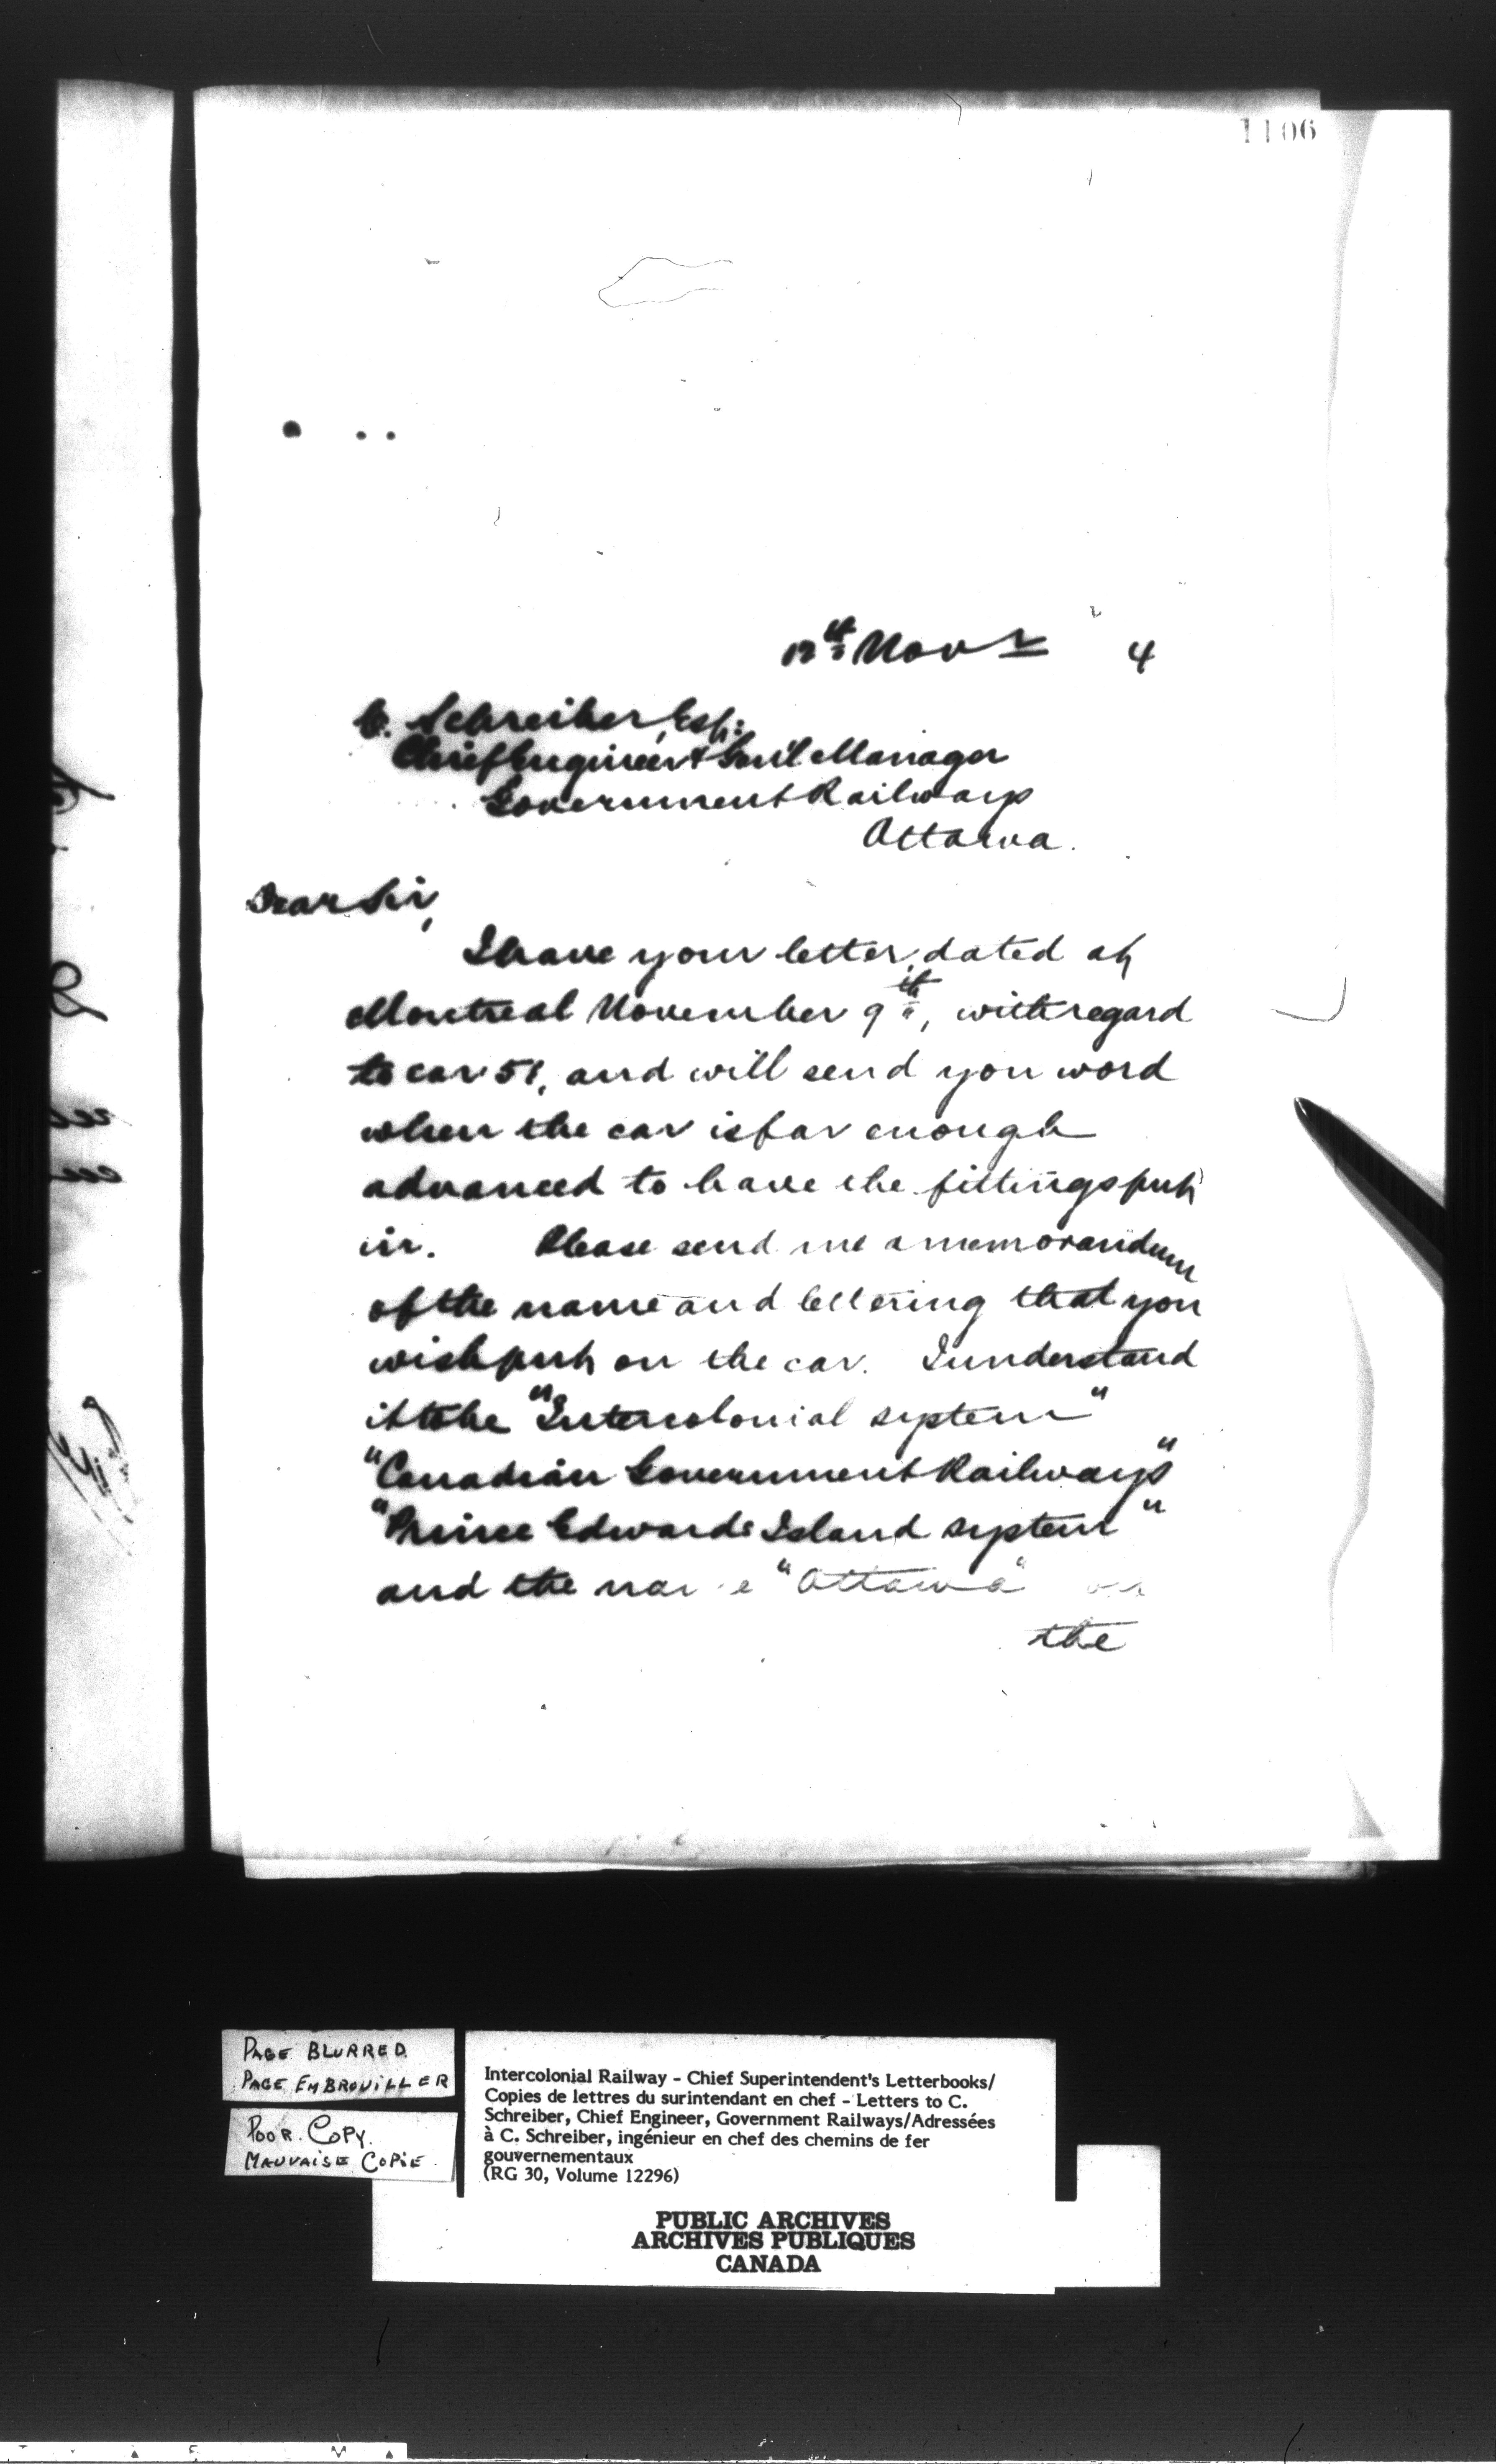 1106
12th Novr 4
C. Schreiber, Esq:
Chief Engineer & Genl Manager
Government Railways
Ottawa.
Dear Sir,
I have your letter, dated at
Montreal November 9th, with regard
to car 51, and will send you word
when the car is far enough
advanced to have the fittings put
in. Please send me a memorandum
of the name and lettering that you
wish put on the car. I understand
it to be "Intercolonial system"
"Canadian Government Railways"
"Prince Edward Island system"
and the name "Ottawa" on
the
PAGE BLURRED.
PAGE EMBROUILLER
POOR. COPY.
MAUVAISE COPIE.
Intercolonial Railway - Chief Superintendent's Letterbooks/
Copies de lettres du surintendant en chef - Letters to C.
Schreiber, Chief Engineer, Government Railways/Adressées
à C. Schreiber, ingénieur en chef des chemins de fer
gouvernementaux
(RG 30, Volume 12296)
PUBLIC ARCHIVES
ARCHIVES PUBLIQUES
CANADA